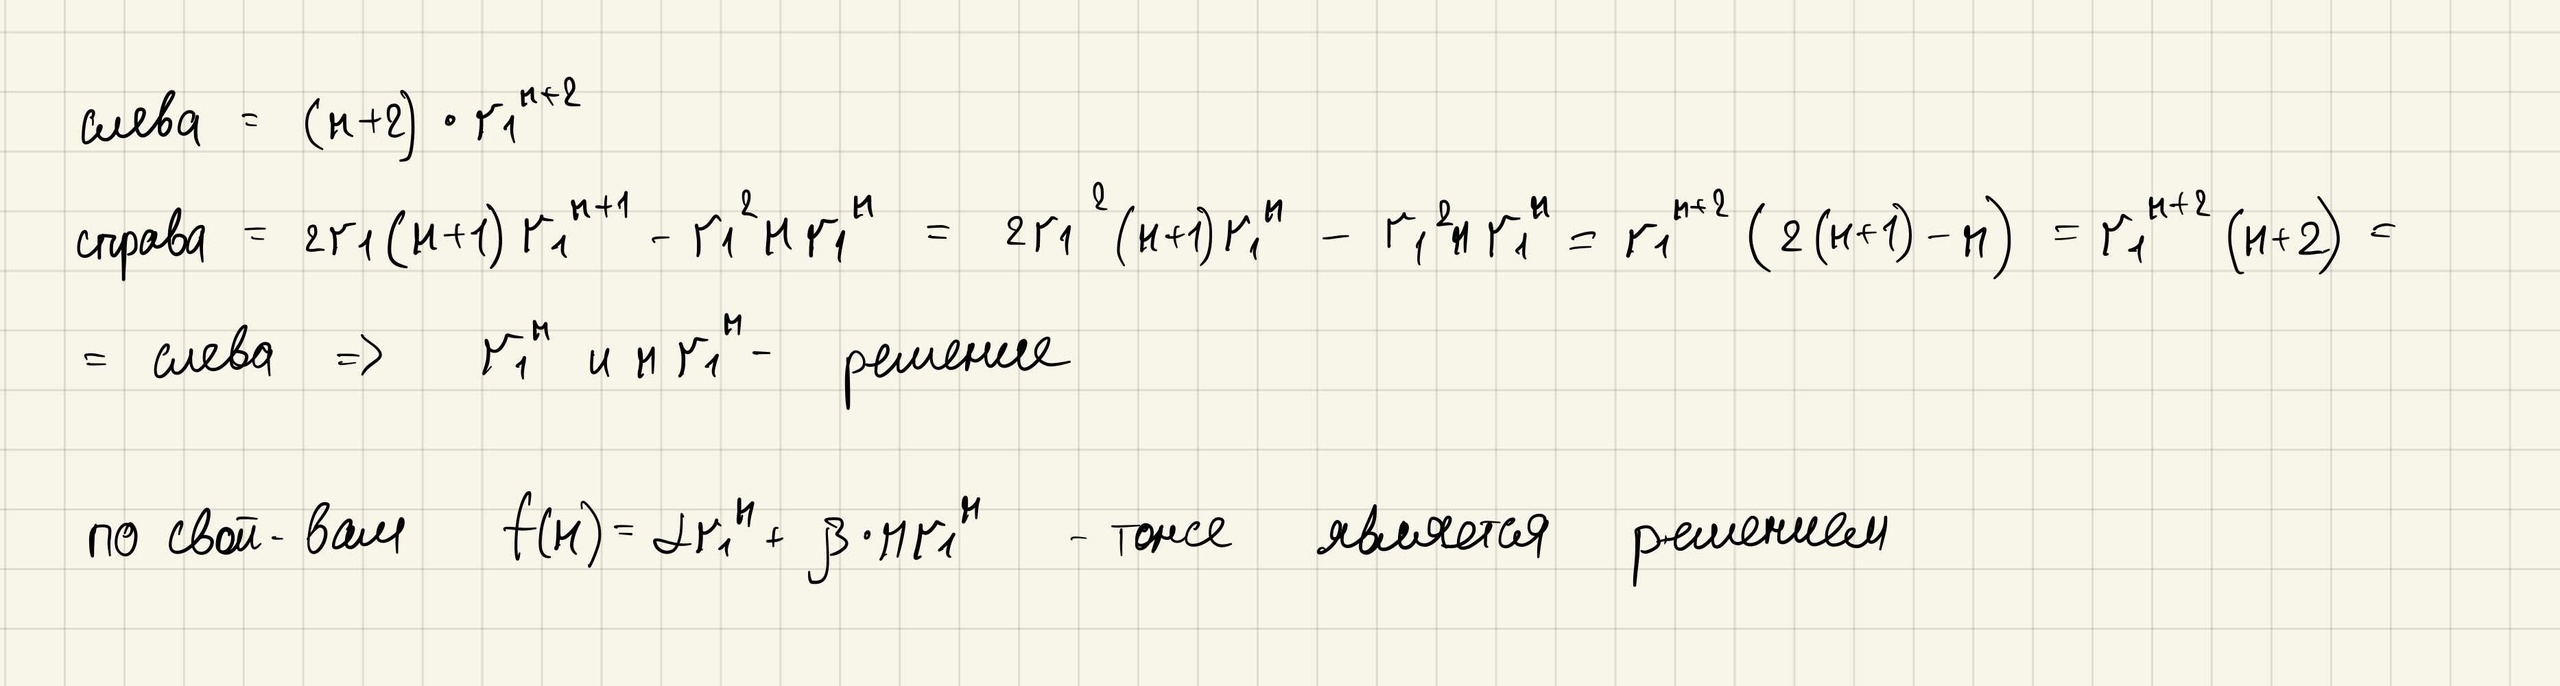 слева = (n+2) · r₁ⁿ⁺²
справа = 2r₁(n+1) r₁ⁿ⁺¹ - r₁² n r₁ⁿ = 2r₁² (n+1) r₁ⁿ - r₁² n r₁ⁿ = r₁ⁿ⁺² (2(n+1) - n) = r₁ⁿ⁺² (n+2) =
= слева => r₁ⁿ и n r₁ⁿ - решение
по свой-вам f(n) = αr₁ⁿ + β·nr₁ⁿ - тоже является решением